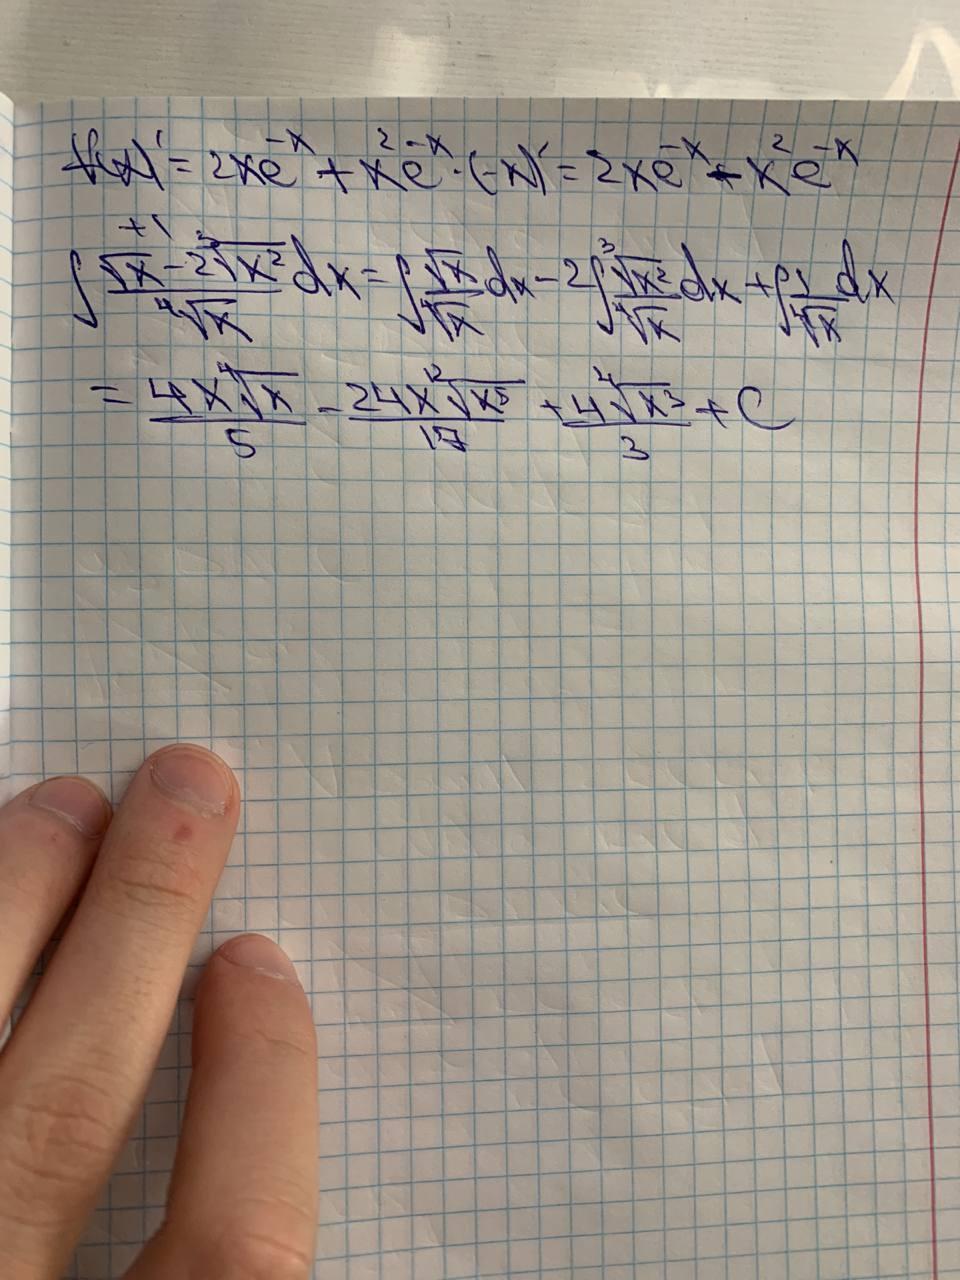 f(x)' = 2xe^{-x} + x^2e^{-x}·(-x)' = 2xe^{-x} - x^2e^{-x}
+1
∫ (√x - 2∛(x²))/(∜x) dx = ∫ √x/∜x dx - 2∫ ∛(x²)/∜x dx + ∫ 1/∜x dx
= 4x∜x/5 - 24x ¹²√(x⁵)/17 + 4∜(x³)/3 + C